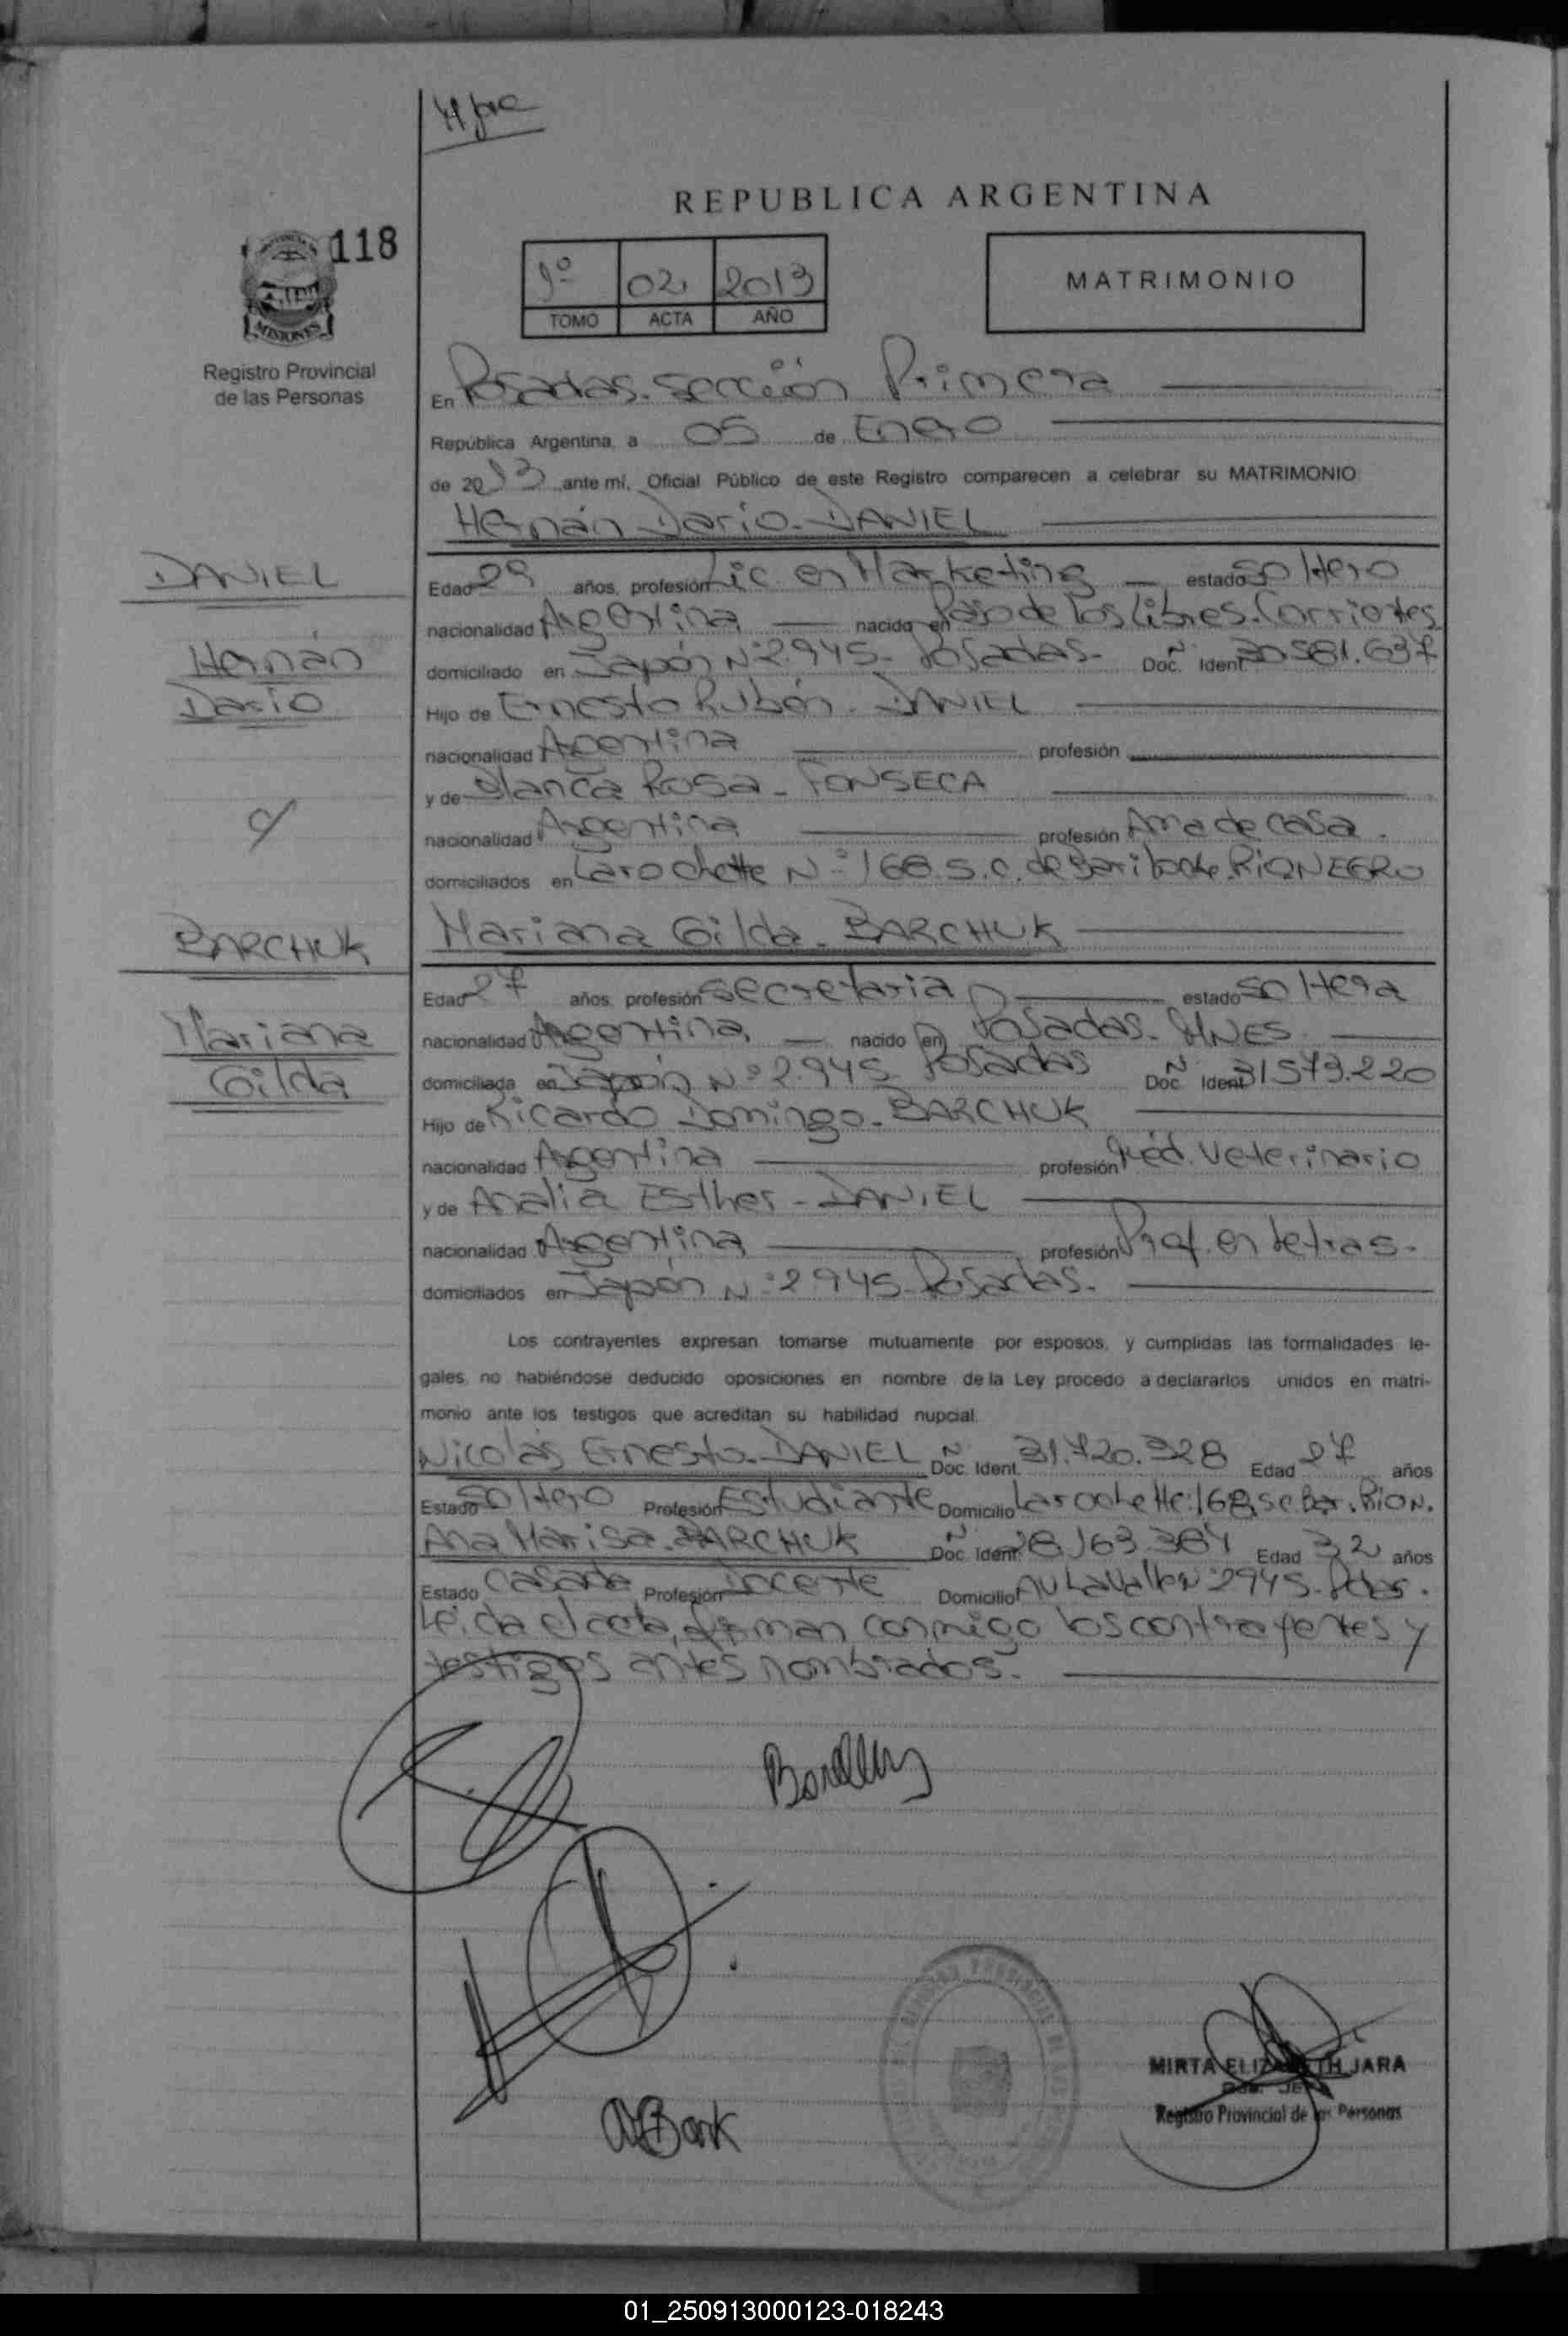 REPUBLICA ARGENTINA
118
MISIONES
Registro Provincial
de las Personas
1º 02 2013
TOMO ACTA AÑO
MATRIMONIO
En Posadas. Sección Primera
República Argentina, a 05 de Enero
de 2013 ante mí, Oficial Público de este Registro comparecen a celebrar su MATRIMONIO
Hernán Darío. DANIEL
DANIEL
Hernán
Darío
c/
BARCHUK
Mariana
Gilda
Edad 29 años, profesión Lic. en Marketing estado soltero
nacionalidad Argentina nacido en Paso de los Libres. Corrientes
domiciliado en Japón Nº 2.945. Posadas. Doc. Ident. 30.581.637
Hijo de Ernesto Rubén. DANIEL
nacionalidad Argentina profesión
y de Blanca Rosa. FONSECA
nacionalidad Argentina profesión Ama de casa.
domiciliados en Larochette Nº 168. S.C. de Bariloche. RIO NEGRO
Mariana Gilda. BARCHUK
Edad 27 años, profesión Secretaria estado soltera
nacionalidad Argentina nacido en Posadas. MNES.
domiciliada en Japón Nº 2.945. Posadas Doc. Ident. 31.573.220
Hijo de Ricardo Domingo. BARCHUK
nacionalidad Argentina profesión Méd. Veterinario
y de Analia Esther. DANIEL
nacionalidad Argentina profesión Prof. en letras.
domiciliados en Japón Nº 2.945. Posadas.
Los contrayentes expresan tomarse mutuamente por esposos, y cumplidas las formalidades le-
gales, no habiéndose deducido oposiciones en nombre de la Ley procedo a declararlos unidos en matri-
monio ante los testigos que acreditan su habilidad nupcial.
Nicolás Ernesto. DANIEL Doc. Ident. 31.720.328 Edad 27 años
Estado soltero Profesión Estudiante Domicilio Larochette: 168. S.C. Bar. Rio N.
Ana Marisa. BARCHUK Doc. Ident. 28.163.384 Edad 32 años
Estado Casada Profesión Docente Domicilio Av Lavalle Nº 2945. Pdas.
Leída el acta, firman conmigo los contrayentes y
testigos antes nombrados.
MIRTA ELIZABETH JARA
Registro Provincial de las Personas
01_250913000123-018243